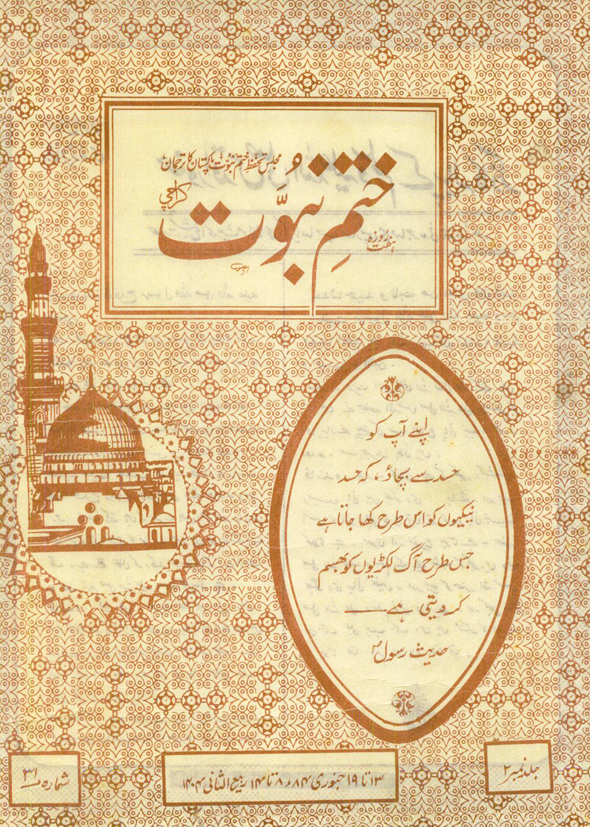 مجلس تحفظ ختم نبوت پاکستان کا ترجمان
ہفت روزہ
ختم نبوّت
کراچی
اپنے آپ کو
حسد سے بچاؤ، کہ حسد
نیکیوں کو اس طرح کھا جاتا ہے
جس طرح آگ لکڑیوں کو بھسم
کر دیتی ہے
حدیث رسولؐ
جلد نمبر ۲
۱۳ تا ۱۹ جنوری ۸۴ء ۸ تا ۱۴ ربیع الثانی ۱۴۰۴
شمارہ ۳۱